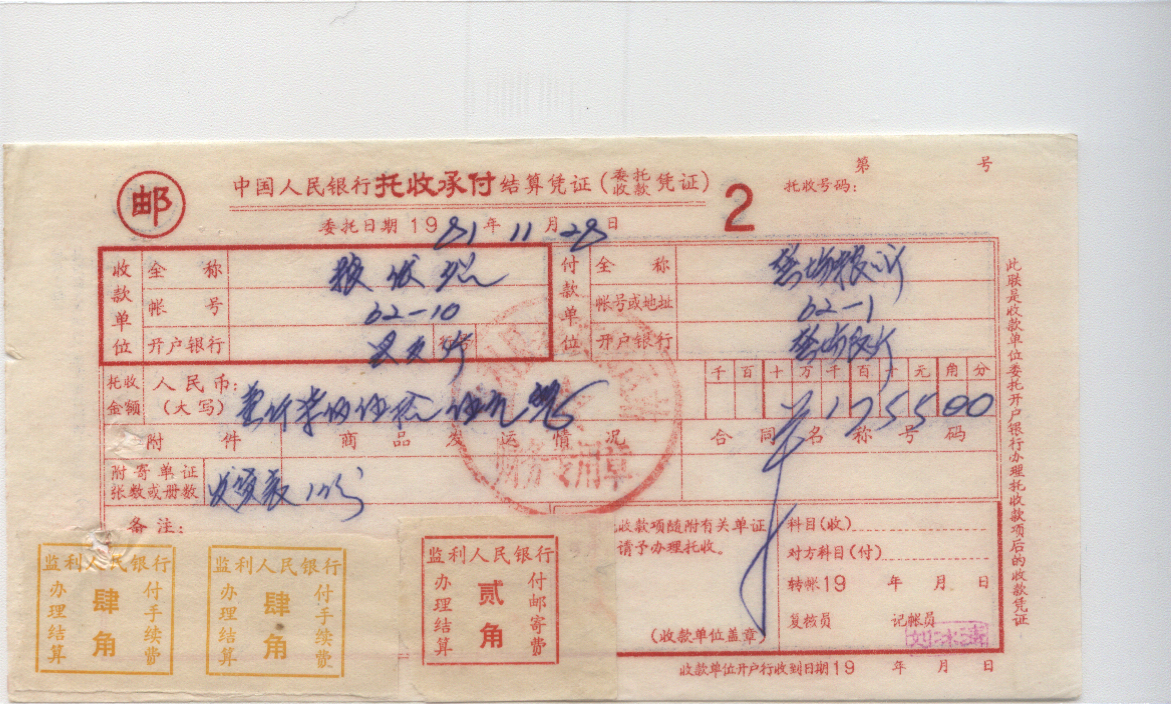 第 号
邮
中国人民银行托收承付结算凭证(委托收款凭证)
2
托收号码:
委托日期 1981年11月28日
收款单位
全称
帐号 62-10
开户银行 行号
付款单位
全称
帐号或地址 62-1
开户银行
托收金额
人民币:
(大写) 壹仟柒佰伍拾伍元
千百十万千百十元角分
¥175500
附件
商品发运情况
合同名称号码
附寄单证张数或册数
备注:
财务专用章
收款项随附有关单证
请予办理托收。
(收款单位盖章)
科目(收)
对方科目(付)
转帐19 年 月 日
复核员 记帐员
收款单位开户行收到日期19 年 月 日
此联是收款单位委托开户银行办理托收款项后的收款凭证
监利人民银行
办理结算
肆角
付手续费
监利人民银行
办理结算
肆角
付手续费
监利人民银行
办理结算
贰角
付邮寄费